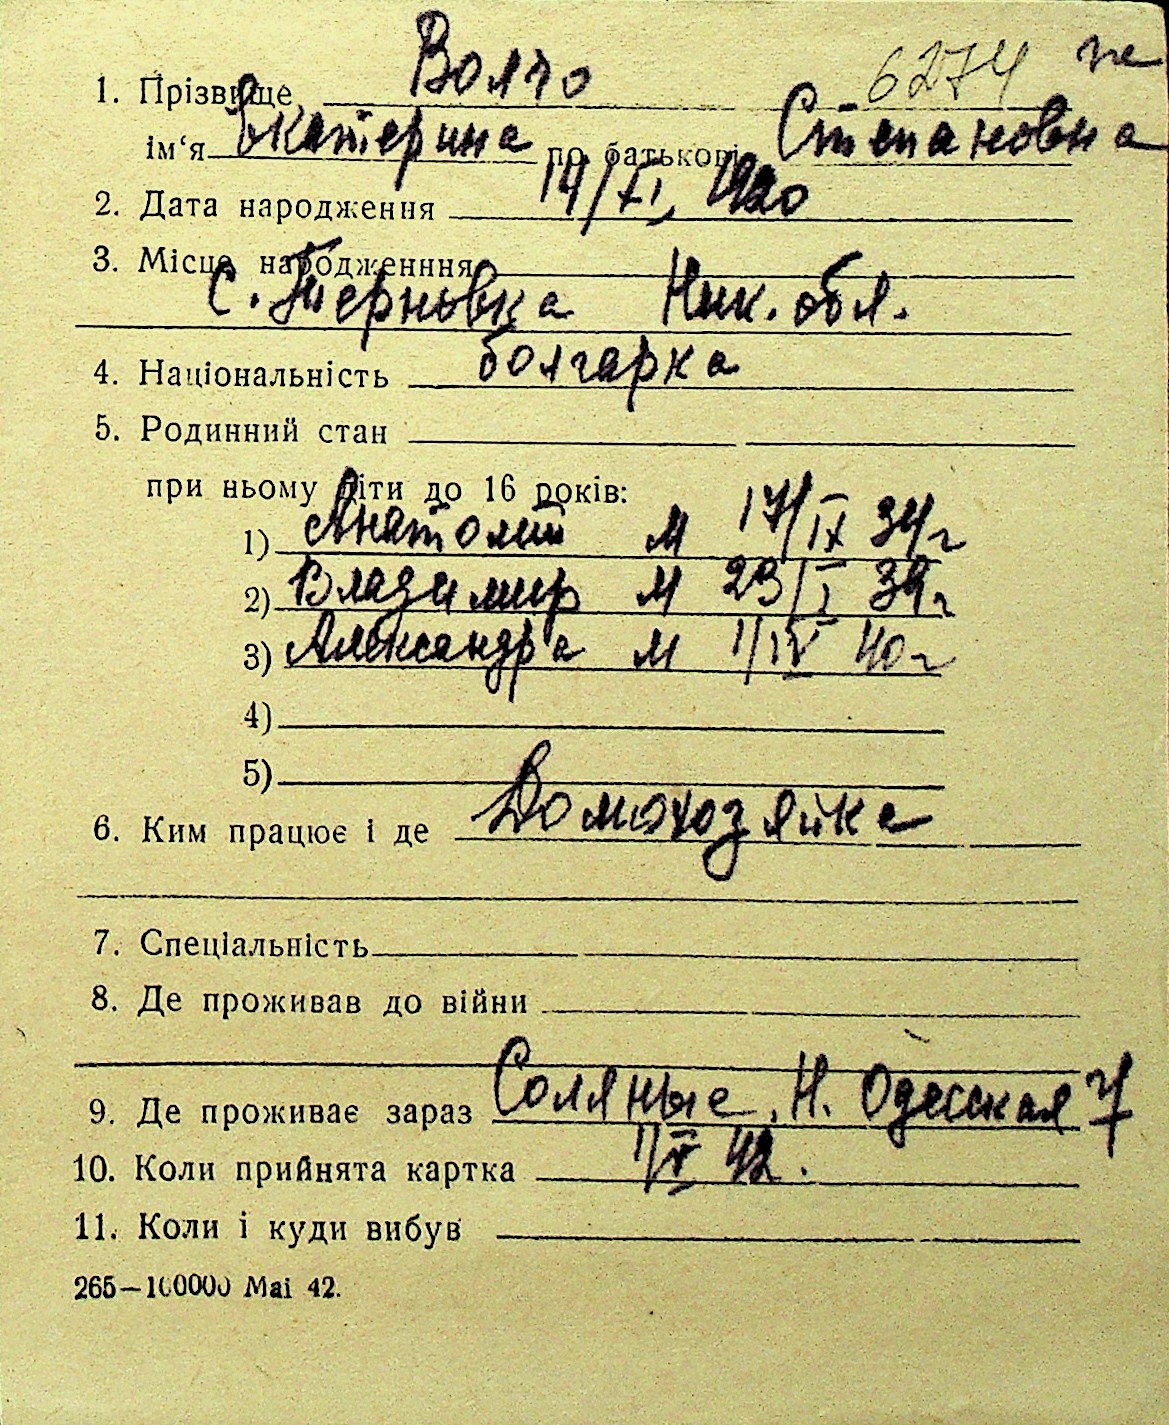 1. Прізвище Волчо 6274
ім‘я Екатерина по батькові Степановна
2. Дата народження 14/XI, 1920
3. Місце народженння
с. Терновка Ник. обл.
4. Національність болгарка
5. Родинний стан
при ньому діти до 16 років:
1) Анатолий М 17/IX 34 г
2) Владимир М 23/I 39 г
3) Александра М 1/IV 40 г
4)
5)
6. Ким працює і де Домохозяйка
7. Спеціальність
8. Де проживав до війни
9. Де проживає зараз Соляные, Н. Одесская 7
10. Коли прийнята картка 1/V 42.
11. Коли і куди вибув
265—100000 Mai 42.